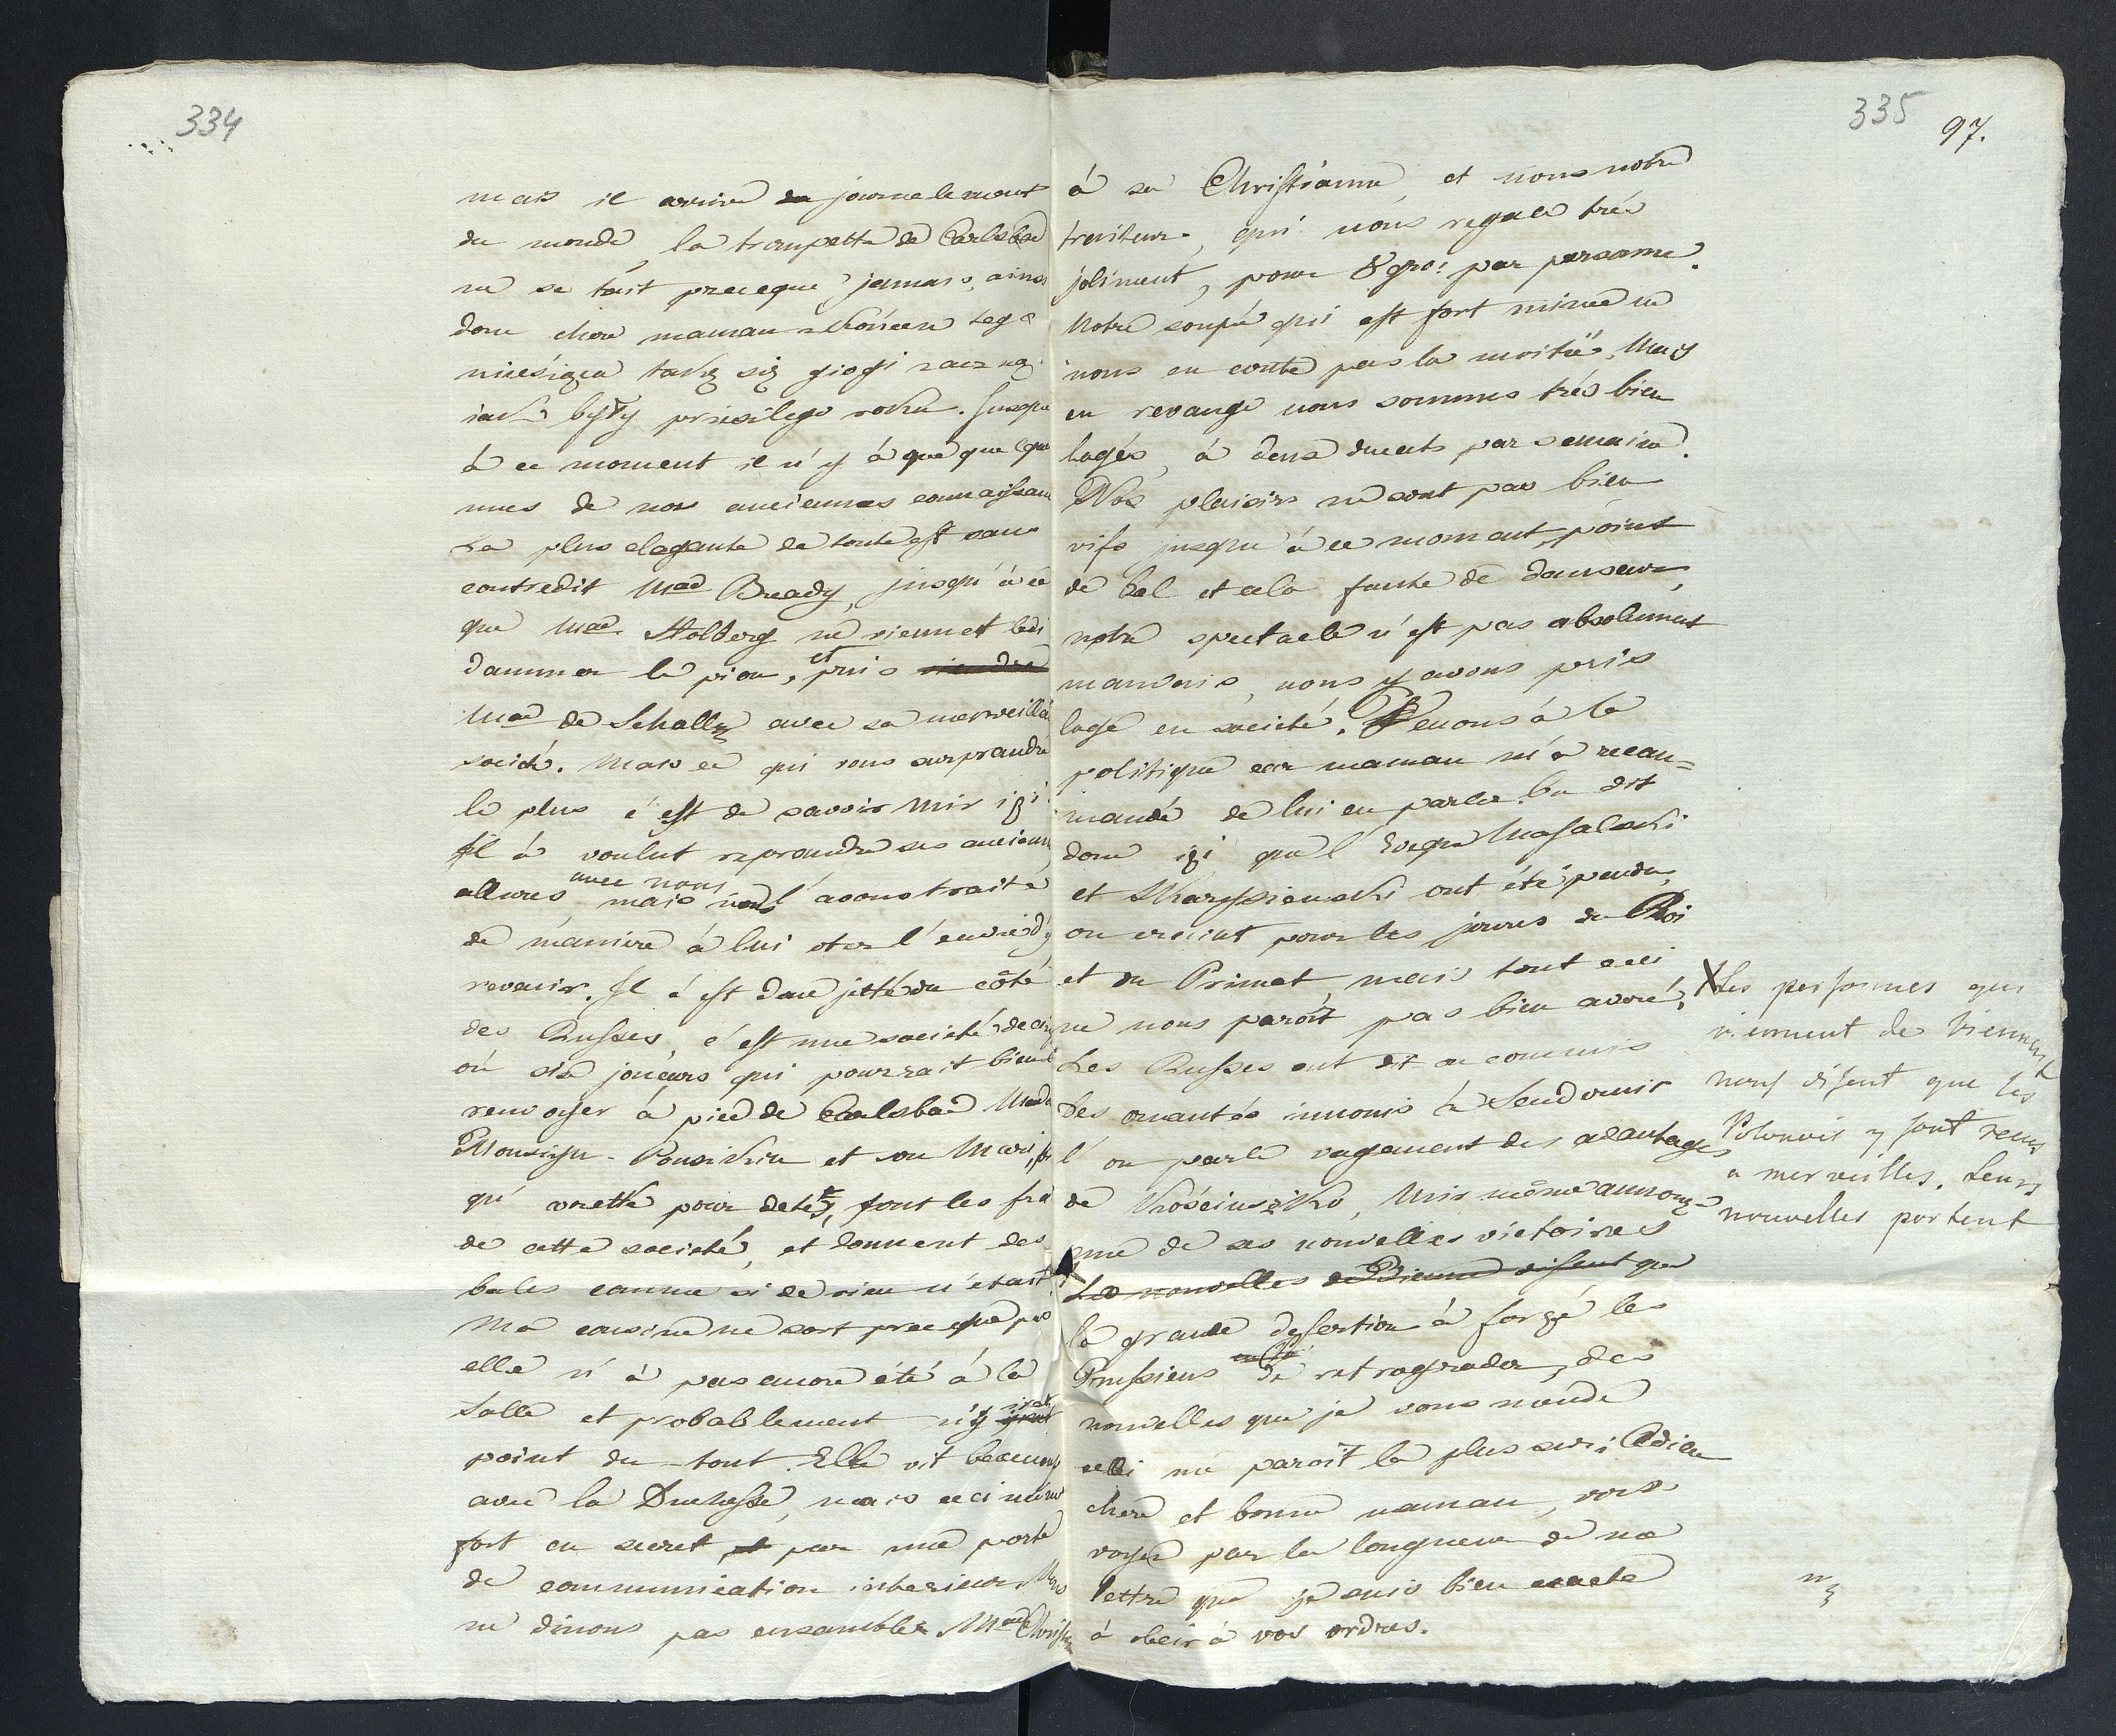 334
mais il arrive journelement
du monde, la trompette de Carlsbad
ne se tait preceque jamais, ainsi
donc chere maman
miesiąca
iak były roku. Jusqu
à ce moment il n'y à que quelques
unes de nos anciennes connaissan
La plus elegante de toute est sans
contredit Mad Bready, jusqu'à ce
que Mad. Stolberg ne viennet lui
dammer le pion, et puis
Mad de Schall avec sa merveille
société. Mais ce qui vous surprandra
le plus c'est de savoir Mir içi.
Il à voulut reprandre ses ancienne
allures avec nous, mais nous l'avons traité
de maniere à lui oter l'envie d'y
revenir. Il c'est donc jetté du côté
des Russes, c'est une société de cinq
où six joüeurs qui pourrait bien
renvoyer à pied de Carlsbad Mad
Monsieur et son Mari,
qu' pour , font les frai
de cette société, et donnent des
bales comme si de rien n'était
Ma cousine ne sort preceque pas
elle n'à pas encore été à la
Salle et probablement n'y irat
point du tout. Elle vit beaucoup
avec la Duchesse, mais ceci même
fort en secret par une porte
de communication interieure. Nous
ne dinons pas ensamble. Mad Christian
335
97.
à sa Christianne, et nous notre
traiteur, qui nous regale très
joliment, pour 8 gros: par personne.
Notre soupé qui est fort mince ne
nous en coute pas la moitié. Mais
en revange nous sommes très bien
logés, à deux ducats par semaine.
Nos plaisirs ne sont pas bien
vifs jusqu'à ce moment, point
de bal et cela faute de danseurs,
notre spectacle n'est pas absolument
mauvais, nous y avons pris
loge en société. Venons à la
politique car maman m'a recam=
mandé de lui en parler. On dit
donc içi que l'Eveque Massalski
et Skarszewski ont été pendu,
on craint pour les jours du Roi
et du Primat, mais tout ceci
ne nous paroît pas bien avoué,
Les Russes ont dit on commis
des cruautés inouis à Sendomir
l'on parle vagement des avantages
de Kościuszko, Mir même annon=
çme de ses nouvelles victoires
X Les nouvelles de Vienne disent que
la grande desertion à forçé les
Prussiens de retrograder, des
nouvelles que je vous mande
celle ci me paroît la plus sure; Adieu
chere et bonne maman, vous
voyez par la longueur de ma
lettre que je suis bien exacte
à obeir à vos ordres.
X Les personnes qui
viennent de Vienne
nous disent que les
Polonois y sont reçus
a merveilles. Leurs
nouvelles portent